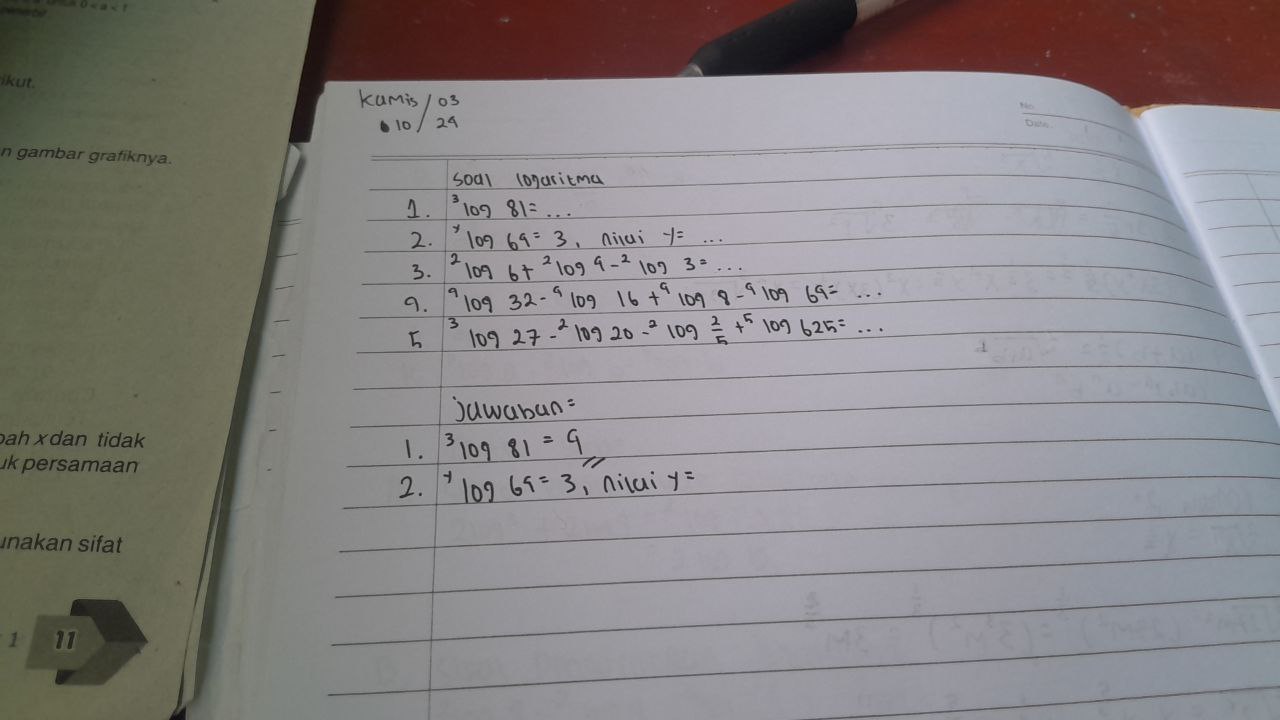 0 < a < 1
ikut.
n gambar grafiknya.
bah x dan tidak
uk persamaan
unakan sifat
1 11
Kamis / 03
10 / 24
No.
Date.
Soal logaritma
1. ³log 81 = ...
2. ʸlog 64 = 3, nilai y = ...
3. ²log 6 + ²log 4 - ²log 3 = ...
4. ⁴log 32 - ⁴log 16 + ⁴log 8 - ⁴log 64 = ...
5 ³log 27 - ²log 20 - ²log 2/5 + ⁵log 625 = ...
jawaban =
1. ³log 81 = 4
2. ʸlog 64 = 3, nilai y =